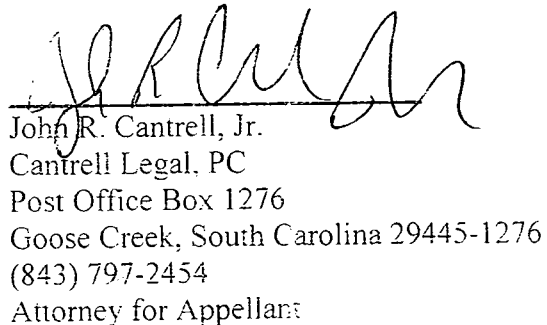 John R. Cantrell, Jr.
Cantrell Legal, PC
Post Office Box 1276
Goose Creek, South Carolina 29445-1276
(843) 797-2454
Attorney for Appellant